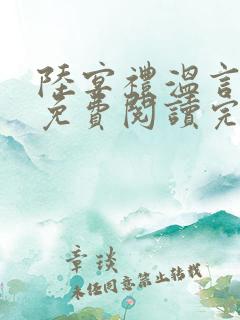 陸宴禮溫言
免費閱讀完
章談
未经同意禁止转载